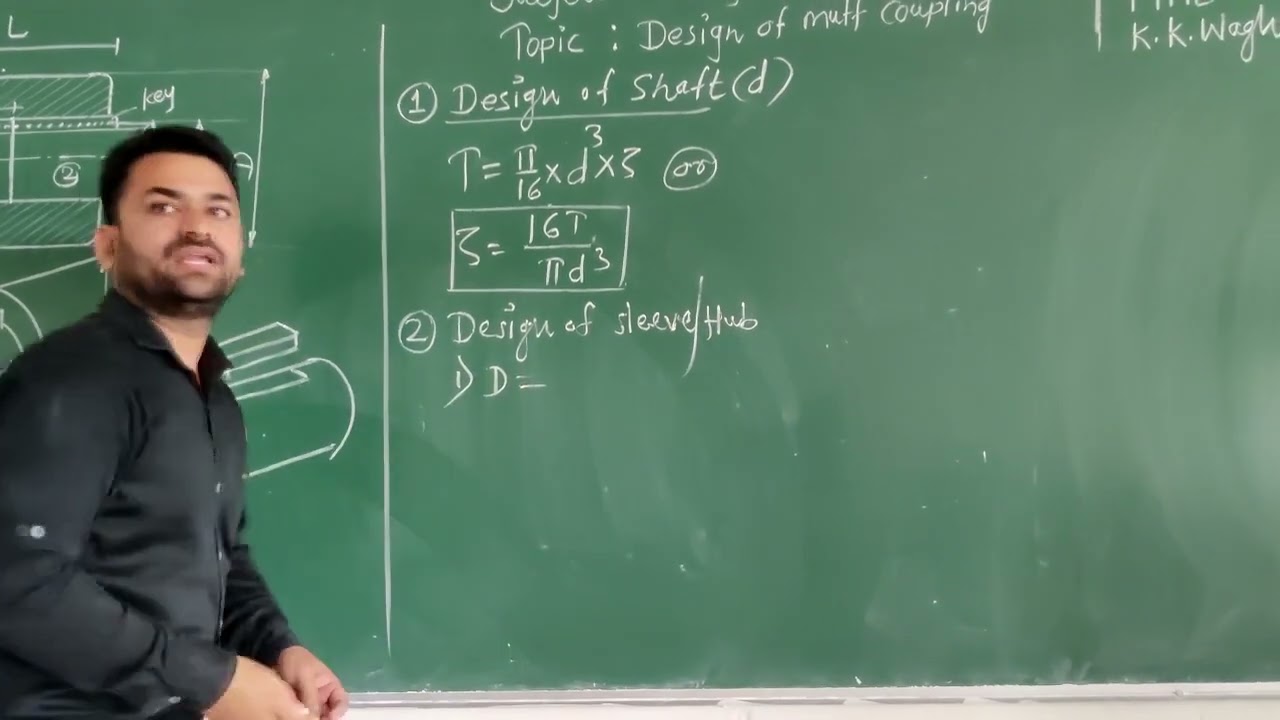 L
key
②
Topic : Design of muff coupling
K.K.Wagh
① Design of Shaft(d)
T = π/16 × d³ × ζ or
ζ = 16T/πd³
② Design of sleeve/Hub
1) D =